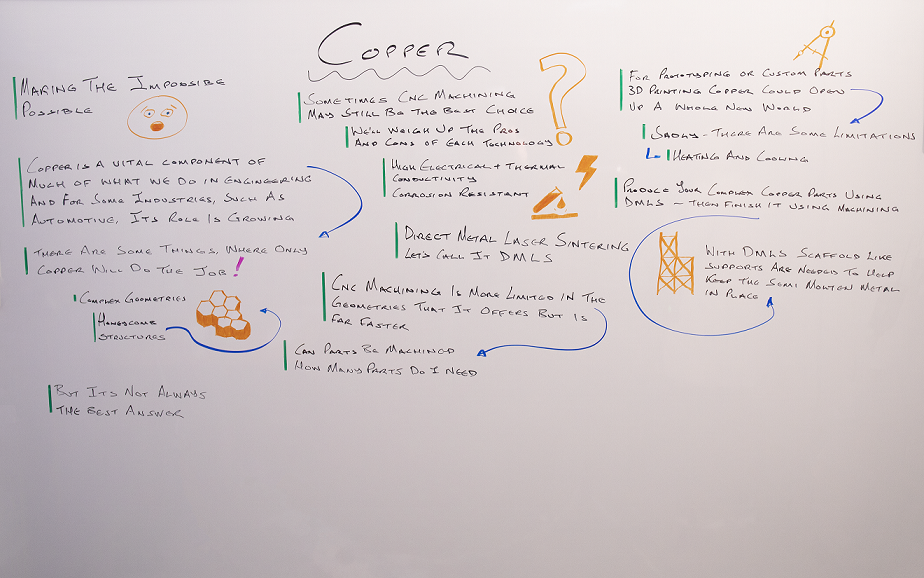 Copper
Making The Impossible
Possible
Copper is a vital component of
much of what we do in engineering
and for some industries, such as
automotive, its role is growing
There are some things, where only
copper will do the job!
Complex Geometries
Honeycomb
Structures
But its not always
the best answer
Sometimes CNC Machining
may still be the best choice
We'll weigh up the pros
and cons of each technology
High Electrical + Thermal
Conductivity
Corrosion Resistant
Direct Metal Laser Sintering
Lets call it DMLS
CNC Machining is more limited in the
geometries that it offers but is
far faster
Can parts be machined
How many parts do I need
For Prototyping or Custom Parts
3D printing copper could open
up a whole new world
Sadly - There are some limitations
Heating and Cooling
Produce your complex copper parts using
DMLS - then finish it using machining
With DMLS scaffold like
supports are needed to help
keep the semi molten metal
in place